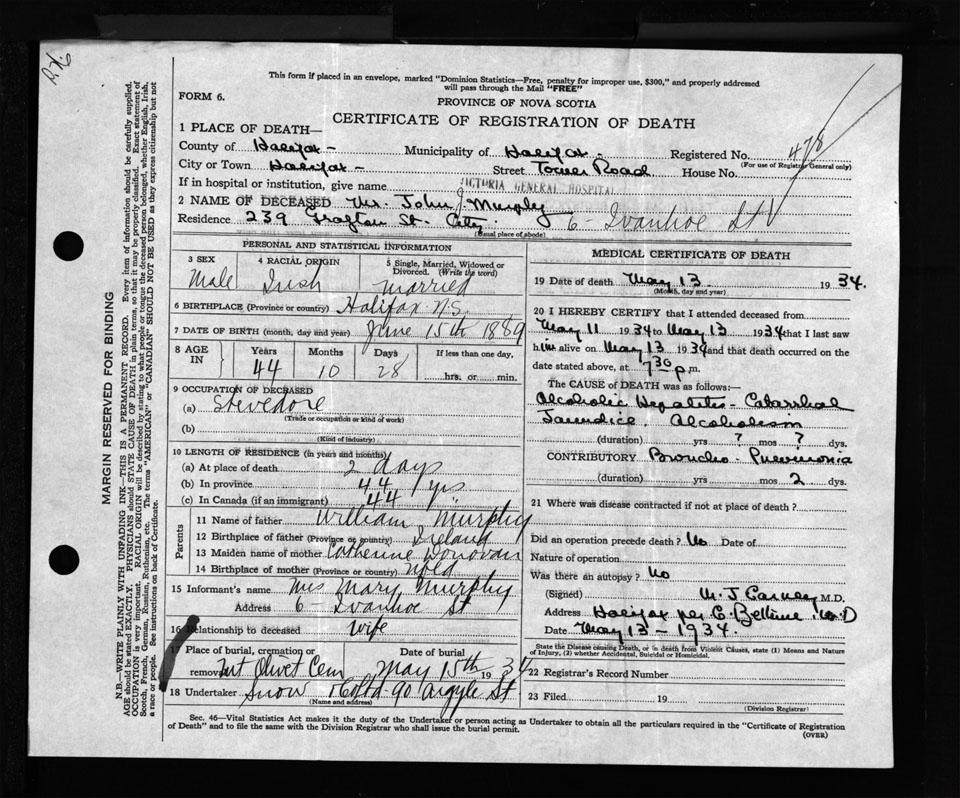 This form if placed in an envelope, marked "Dominion Statistics—Free, penalty for improper use, $300," and properly addressed
will pass through the Mail "FREE"
FORM 6.
PROVINCE OF NOVA SCOTIA
CERTIFICATE OF REGISTRATION OF DEATH
1 PLACE OF DEATH—
County of Halifax - Municipality of Halifax - Registered No. 478
(For use of Registrar General only)
City or Town Halifax - Street Tower Road House No.
If in hospital or institution, give name VICTORIA GENERAL HOSPITAL
2 NAME OF DECEASED Mr. John J. Murphy
Residence 239 Grafton St. City. 6 - Ivanhoe St
(Usual place of abode)
PERSONAL AND STATISTICAL INFORMATION
3 SEX 4 RACIAL ORIGIN 5 Single, Married, Widowed or Divorced. (Write the word)
Male Irish married
6 BIRTHPLACE (Province or country) Halifax N.S.
7 DATE OF BIRTH (month, day and year) June 15th 1889
8 AGE IN Years Months Days If less than one day,
44 10 28 hrs. or min.
9 OCCUPATION OF DECEASED
(a) Stevedore
(Trade or occupation or kind of work)
(b)
(Kind of industry)
10 LENGTH OF RESIDENCE (in years and months)
(a) At place of death 2 days
(b) In province 44 yrs
(c) In Canada (if an immigrant) 44 "
Parents
11 Name of father William Murphy
12 Birthplace of father (Province or country) Ireland
13 Maiden name of mother Catherine Donovan
14 Birthplace of mother (Province or country) Nfld
15 Informant's name Mrs Mary Murphy
Address 6 - Ivanhoe St
16 Relationship to deceased wife
17 Place of burial, cremation or removal Date of burial
Mt Olivet Cem May 15th 1934
18 Undertaker Snow & Co Ltd - 90 Argyle St
(Name and address)
MEDICAL CERTIFICATE OF DEATH
19 Date of death May 13 1934.
(Month, day and year)
20 I HEREBY CERTIFY that I attended deceased from
May 11 1934 to May 13 1934 that I last saw
him alive on May 13 1934 and that death occurred on the
date stated above, at 7 30 p.m.
The CAUSE of DEATH was as follows:
Alcoholic Hepatitis - Catarrhal
Jaundice. Alcoholism
(duration) yrs ? mos ? dys.
CONTRIBUTORY Broncho - Pneumonia
(duration) yrs mos 2 dys.
21 Where was disease contracted if not at place of death?
Did an operation precede death? No Date of
Nature of operation
Was there an autopsy? No
(Signed) M. J. Carney M.D.
Address Halifax per C. M.D
Date May 13 - 1934.
State the Disease causing Death, or in death from Violent Causes, state (1) Means and Nature of Injury, (2) whether Accidental, Suicidal or Homicidal.
22 Registrar's Record Number
23 Filed 19
(Division Registrar)
Sec. 46—Vital Statistics Act makes it the duty of the Undertaker or person acting as Undertaker to obtain all the particulars required in the "Certificate of Registration
of Death" and to file the same with the Division Registrar who shall issue the burial permit.
(OVER)
MARGIN RESERVED FOR BINDING
N.B.—WRITE PLAINLY WITH UNFADING INK—THIS IS A PERMANENT RECORD. Every item of information should be carefully supplied.
AGE should be stated EXACTLY. PHYSICIANS should STATE CAUSE OF DEATH in plain terms, so that it may be properly classified. Exact statement of
OCCUPATION is very important. RACIAL ORIGIN will be described by stating to what people or tongue the deceased person belonged, whether English, Irish,
Scotch, French, German, Russian, Ruthenian, etc. The terms "AMERICAN" or "CANADIAN" SHOULD NOT BE USED as they express citizenship but not
a race or people. See instructions on back of Certificate.